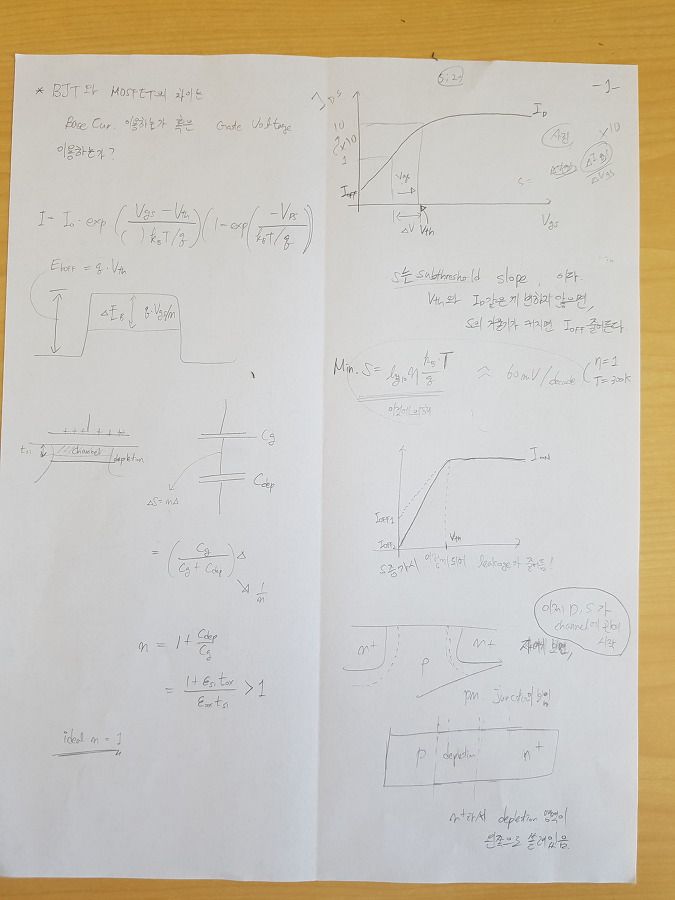 * BJT와 MOSFET의 차이는
Base Cur. 이용하는가 혹은 Gate Voltage
이용하는가?
I = I₀ · exp ((Vgs - Vth)/(( )k_BT/q)) (1 - exp(-V_DS/(k_BT/q)))
E_bOFF = q · Vth
ΔE_B q·Vgs/n
channel
depletion
Cg
Cdep
ΔS = mΔ
= (Cg/(Cg + Cdep)) Δ
↘ 1/n
n = 1 + Cdep/Cg
= (1 + ε_si t_ox)/(ε_ox t_si) > 1
ideal n = 1
-1-
I_DS
10
1
I_OFF
I_D
Vgs
ΔV Vth
Vgs
ΔVgs
S는 subthreshold slope, 이다.
Vth와 I_D같은게 변하지 않으면,
S의 기울기가 커지면 I_OFF 줄어든다
Min. S = log₁₀ n (k_B/q)·T ≈ 60mV/decade (n=1
T=300K
I_OFF1
I_OFF2
Vth
S증가시 leakage가 줄어듬!
이제 D, S가
channel에
시작
n+ p n+
자세히 보면,
pn junction이
p depletion n+
depletion 영역이
왼쪽으로 쏠려있음.